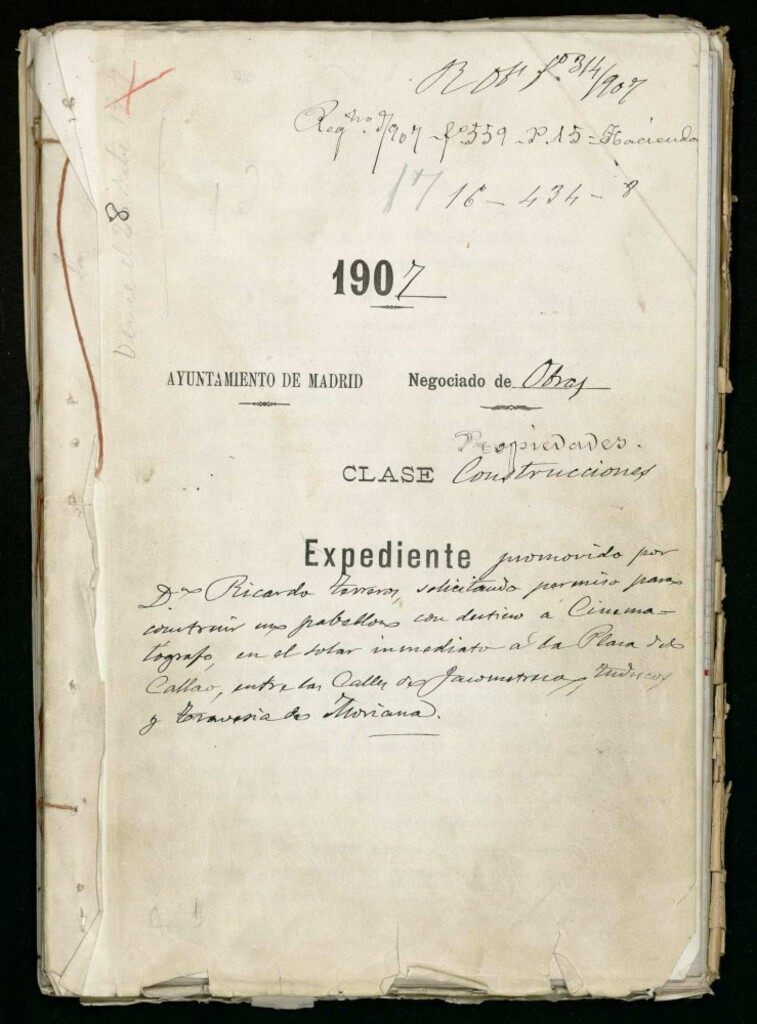 R Obs fº 314/907
Regº nº 9/907 - fº 559 - P. 15 - Hacienda
17 16 - 434 - 8
Vence el 28
1907
AYUNTAMIENTO DE MADRID Negociado de Obras
Propiedades.
CLASE Construcciones
Expediente promovido por
Dn Ricardo solicitando permiso para
construir un pabellon con destino á Cinema-
tógrafo, en el solar inmediato á la Plaza del
Callao, entre las Calles de Jacometrezo,
y travesia de Moriana.